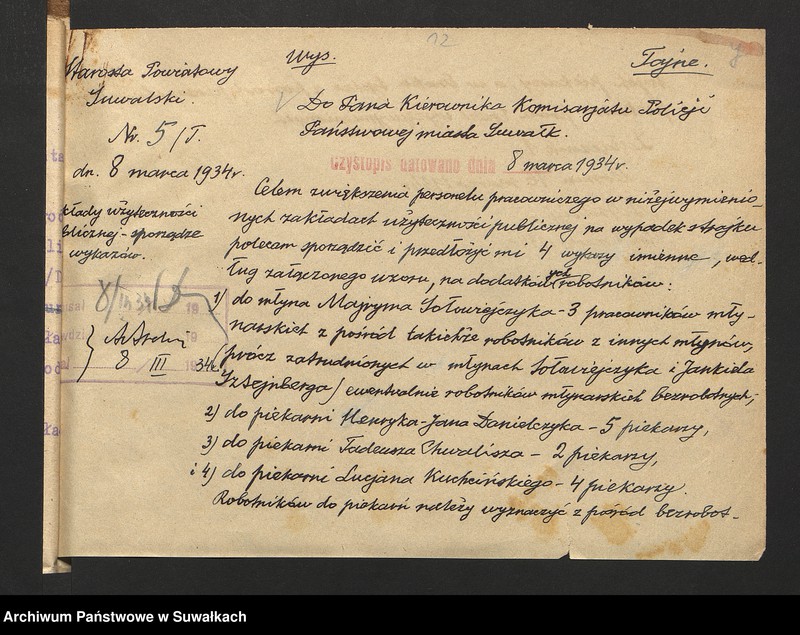 12
Starosta Powiatowy
Suwalski.
Nr. 5/T.
dn. 8 marca 1934r.
kłady użyteczności
blicznej - sporządze
wykazów.
8/III 34
8 III 34r.
Wys.
Tajne.
8
Do Pana Kierownika Komisarjatu Policji
Państwowej miasta Suwałk.
Czystopis datowano dnia 8 marca 1934r.
Celem zwiększenia personelu pracowniczego w niżejwymienio-
nych zakładach użyteczności publicznej na wypadek strajku
polecam sporządzić i przedłożyć mi 4 wykazy imienne, wed-
ług załączonego wzoru, na dodatkowych robotników:
1) do młyna Majryma Sołowiejczyka - 3 pracowników mły-
narskich z pośród takichże robotników z innych młynów,
prócz zatrudnionych w młynach Sołowiejczyka i Jankiela
Sztejnberga/ ewentualnie robotników młynarskich bezrobotnych;
2) do piekarni Henryka-Jana Danielczyka - 5 piekarzy,
3) do piekarni Tadeusza Chwalisza - 2 piekarzy,
i 4) do piekarni Lucjana Kuchcińskiego - 4 piekarzy.
Robotników do piekarń należy wyznaczyć z pośród bezrobot-
Archiwum Państwowe w Suwałkach